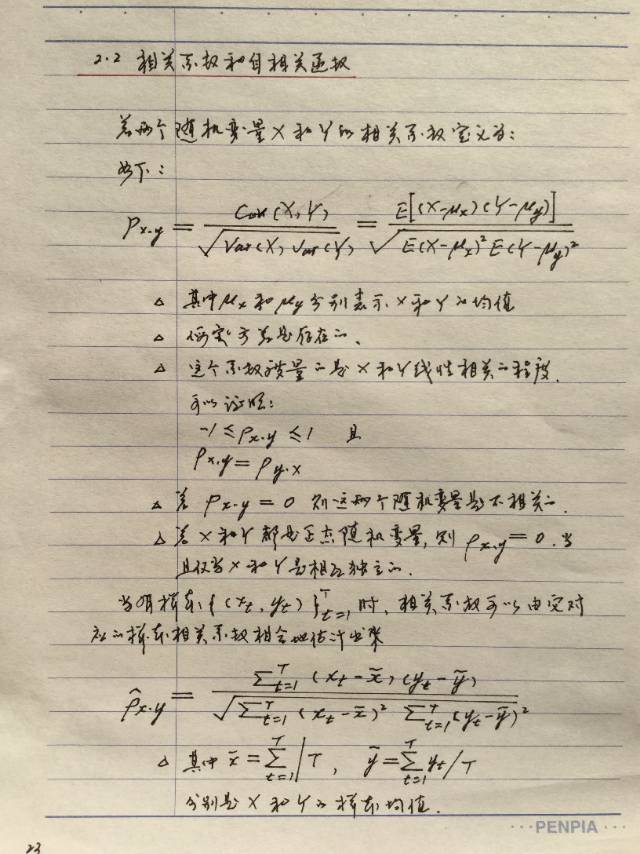 2.2 相关系数和自相关函数
若两个随机变量X和Y的相关系数定义为:
如下:
ρx.y = Cov(X,Y) / √Var(X) Var(Y) = E[(X-μx)(Y-μy)] / √E(X-μx)² E(Y-μy)²
△ 其中μx和μy分别表示X和Y的均值
△ 假定方差是存在的、
△ 这个系数度量的是X和Y线性相关的程度.
可以证明:
-1 ≤ ρx.y ≤ 1 且
ρx.y = ρy.x
△ 若 ρx.y = 0 则这两个随机变量是不相关的.
△ 若X和Y都是正态随机变量,则 ρx.y = 0.当
且仅当X和Y是相互独立的.
当有样本{(xt, yt)}ᵀt=1时,相关系数可以由它对
应的样本相关系数相合地估计出来
ρ̂x.y = Σᵀt=1 (xt-x̄)(yt-ȳ) / √Σᵀt=1 (xt-x̄)² Σᵀt=1 (yt-ȳ)²
△ 其中 x̄ = Σᵀt=1 / T, ȳ = Σᵀt=1 yt/T
分别是X和Y的样本均值.
PENPIA
23